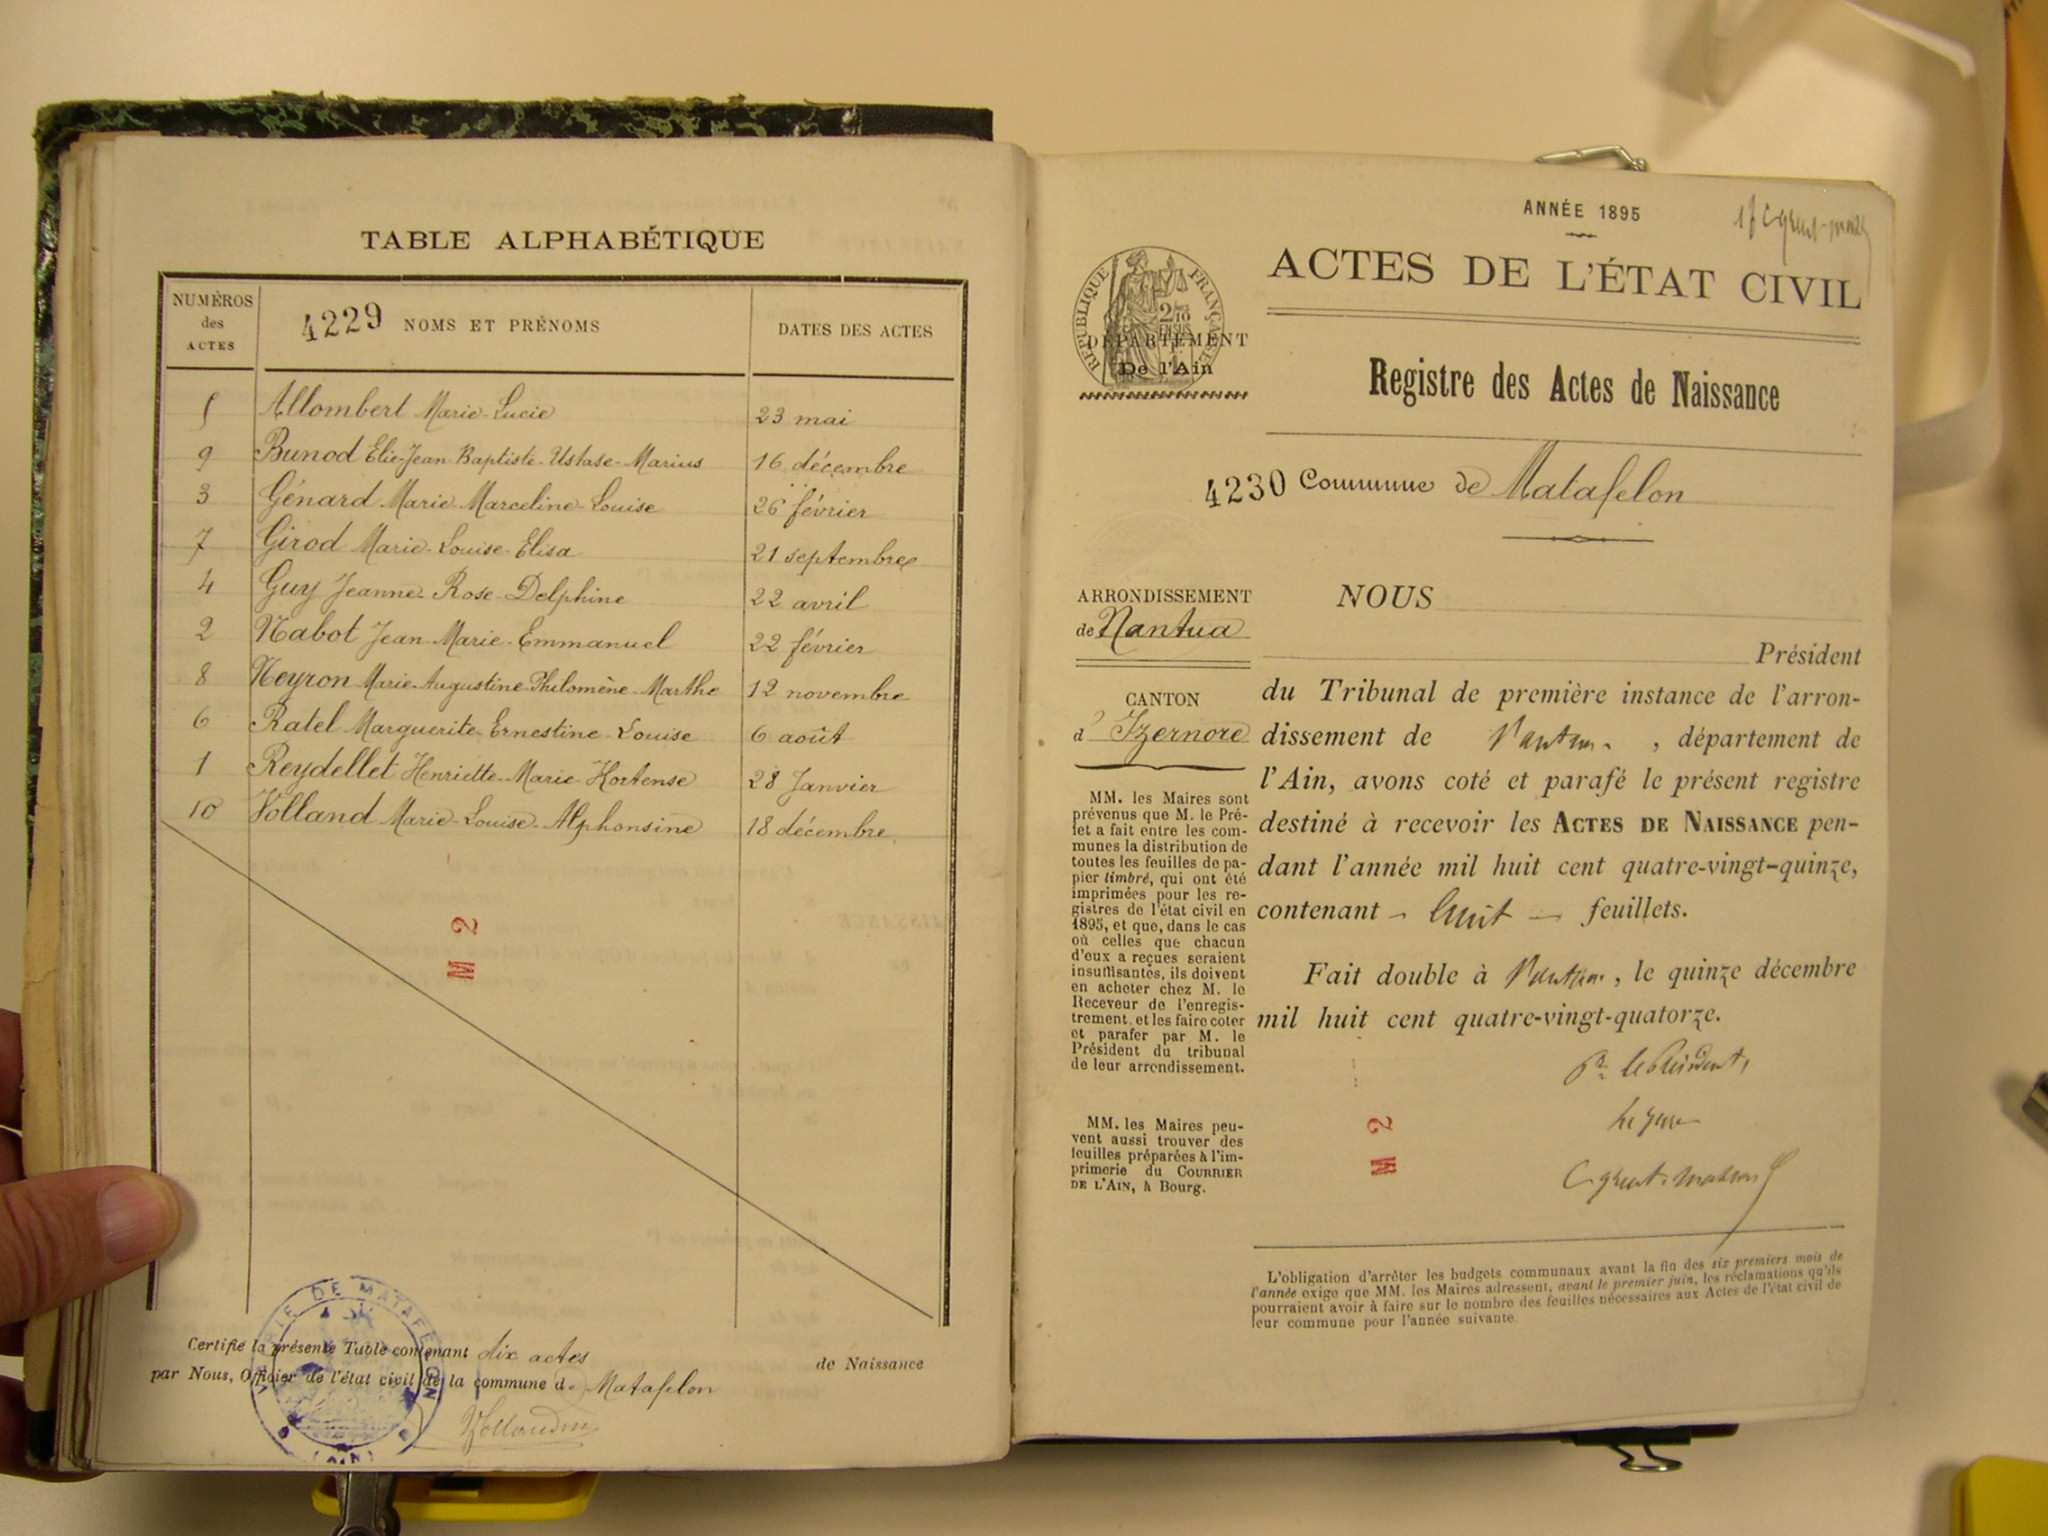 TABLE ALPHABÉTIQUE
NUMÉROS des ACTES
4229 NOMS ET PRÉNOMS
DATES DES ACTES
5 Allombert Marie-Lucie 23 mai
9 Bunod Elie-Jean-Baptiste-Ustase-Marius 16 décembre
3 Génard Marie-Marceline-Louise 26 février
7 Girod Marie-Louise-Elisa 21 septembre
4 Guy Jeanne-Rose-Delphine 22 avril
2 Nabot Jean-Marie-Emmanuel 22 février
8 Neyron Marie-Augustine-Philomène-Marthe 12 novembre
6 Ratel Marguerite-Ernestine-Louise 6 août
1 Reydellet Henriette-Marie-Hortense 28 Janvier
10 Volland Marie-Louise-Alphonsine 18 décembre
M 2
MAIRIE DE MATAFELON
(AIN)
Certifié la présente Table contenant dix actes de Naissance
par Nous, Officier de l'état civil de la commune de Matafelon
ANNÉE 1895
ACTES DE L'ÉTAT CIVIL
RÉPUBLIQUE FRANÇAISE
DÉPARTEMENT
De l'Ain
Registre des Actes de Naissance
4230 Commune de Matafelon
ARRONDISSEMENT
de Nantua
CANTON
d' Izernore
MM. les Maires sont
prévenus que M. le Pré-
fet a fait entre les com-
munes la distribution de
toutes les feuilles de pa-
pier timbré, qui ont été
imprimées pour les re-
gistres de l'état civil en
1895, et que, dans le cas
où celles que chacun
d'eux a reçues seraient
insuffisantes, ils doivent
en acheter chez M. le
Receveur de l'enregis-
trement, et les faire coter
et parafer par M. le
Président du tribunal
de leur arrondissement.
MM. les Maires peu-
vent aussi trouver des
feuilles préparées à l'im-
primerie du COURRIER
DE L'AIN, à Bourg.
NOUS
Président
du Tribunal de première instance de l'arron-
dissement de Nantua, département de
l'Ain, avons coté et parafé le présent registre
destiné à recevoir les ACTES DE NAISSANCE pen-
dant l'année mil huit cent quatre-vingt-quinze,
contenant - huit - feuillets.
Fait double à Nantua, le quinze décembre
mil huit cent quatre-vingt-quatorze.
Pr le Président,
Le Juge
M 2
L'obligation d'arrêter les budgets communaux avant la fin des six premiers mois de
l'année exige que MM. les Maires adressent, avant le premier juin, les réclamations qu'ils
pourraient avoir à faire sur le nombre des feuilles nécessaires aux Actes de l'état civil de
leur commune pour l'année suivante.